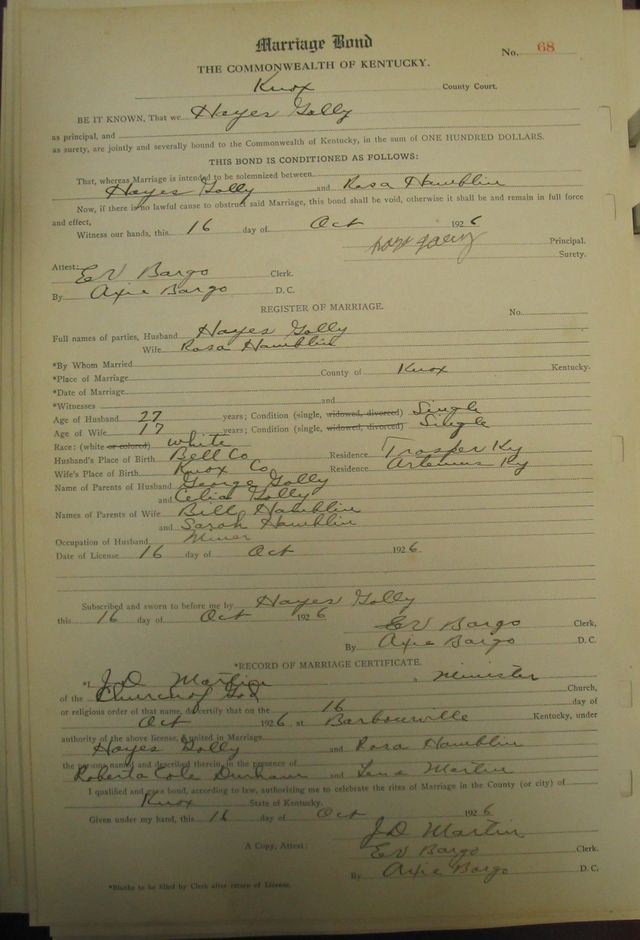 Marriage Bond
No. 68
THE COMMONWEALTH OF KENTUCKY.
Knox County Court.
BE IT KNOWN, That we Hayes Golly
as principal, and
as surety, are jointly and severally bound to the Commonwealth of Kentucky, in the sum of ONE HUNDRED DOLLARS.
THIS BOND IS CONDITIONED AS FOLLOWS:
That, whereas Marriage is intended to be solemnized between
Hayes Golly and Rosa Hamblin
Now, if there is no lawful cause to obstruct said Marriage, this bond shall be void, otherwise it shall be and remain in full force
and effect,
Witness our hands, this 16 day of Oct 1926
Principal.
Surety.
Attest: EV Bargo Clerk.
By Axie Bargo D. C.
REGISTER OF MARRIAGE.
No.
Full names of parties, Husband Hayes Golly
Wife Rosa Hamblin
*By Whom Married
*Place of Marriage County of Knox Kentucky.
*Date of Marriage
*Witnesses and
Age of Husband 27 years; Condition (single, widowed, divorced) Single
Age of Wife 17 years; Condition (single, widowed, divorced) Single
Race: (white or colored) white
Husband's Place of Birth Bell Co Residence Trosper Ky
Wife's Place of Birth Knox Co Residence Artemus Ky
Name of Parents of Husband George Golly
and Celia Golly
Names of Parents of Wife Bill Hamblin
and Sarah Hamblin
Occupation of Husband Miner
Date of License 16 day of Oct 1926
Subscribed and sworn to before me by Hayes Golly
this 16 day of Oct 1926
EV Bargo Clerk,
By Axie Bargo D. C.
*RECORD OF MARRIAGE CERTIFICATE.
*I J D Martin, a Minister
of the Church of God Church,
or religious order of that name, do certify that on the 16 day of
Oct 1926, at Barbourville Kentucky, under
authority of the above license, I united in Marriage
Hayes Golly and Rosa Hamblin
the persons named and described therein, in the presence of
Roberta Cole Durham and Lena Martin
I qualified and gave bond, according to law, authorizing me to celebrate the rites of Marriage in the County (or city) of
Knox State of Kentucky.
Given under my hand, this 16 day of Oct 1926
J D Martin
A Copy, Attest: EV Bargo Clerk.
By Axie Bargo D. C.
*Blanks to be filled by Clerk after return of License.